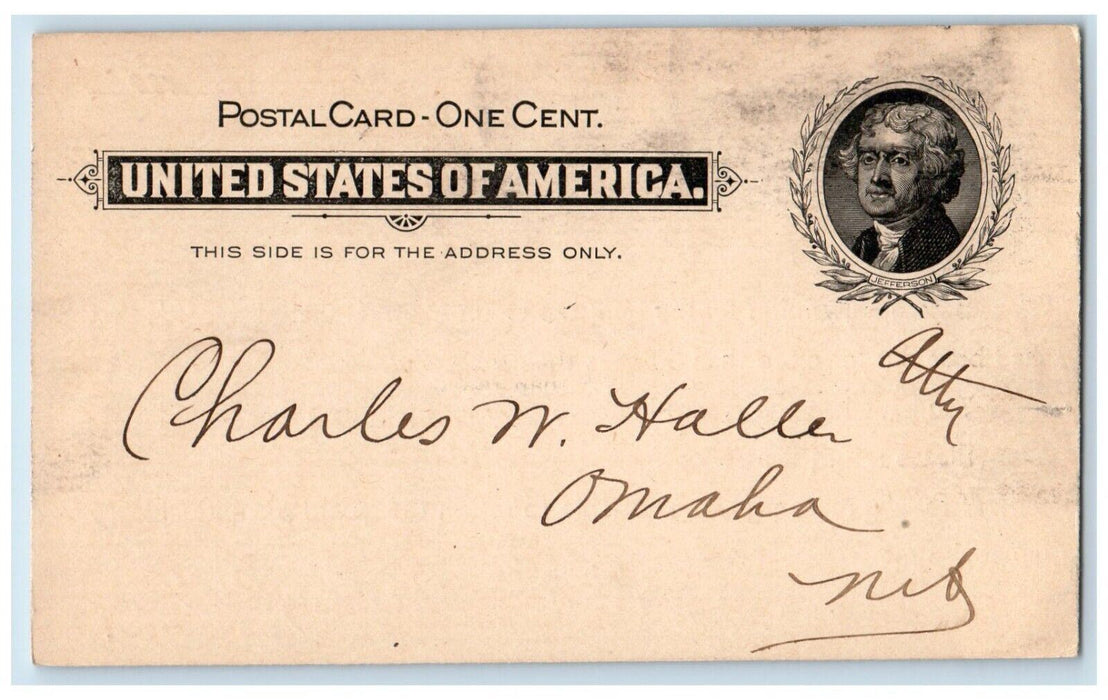 POSTAL CARD - ONE CENT.
UNITED STATES OF AMERICA.
THIS SIDE IS FOR THE ADDRESS ONLY.
JEFFERSON
Charles W. Haller Atty
Omaha
Neb